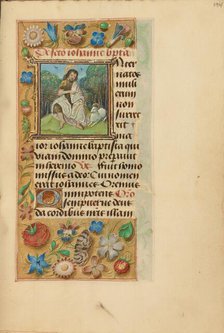 De scto iohanne bpta
Inter
natos
muli
erum
non
surre
xit
ma
ior iohanne baptista qui
viam domino preparauit
in heremo Fuit homo
missus a deo Cui nomen
erat iohannes Oremus
Omnipotens
sempiterne deus
da cordibus nris illam